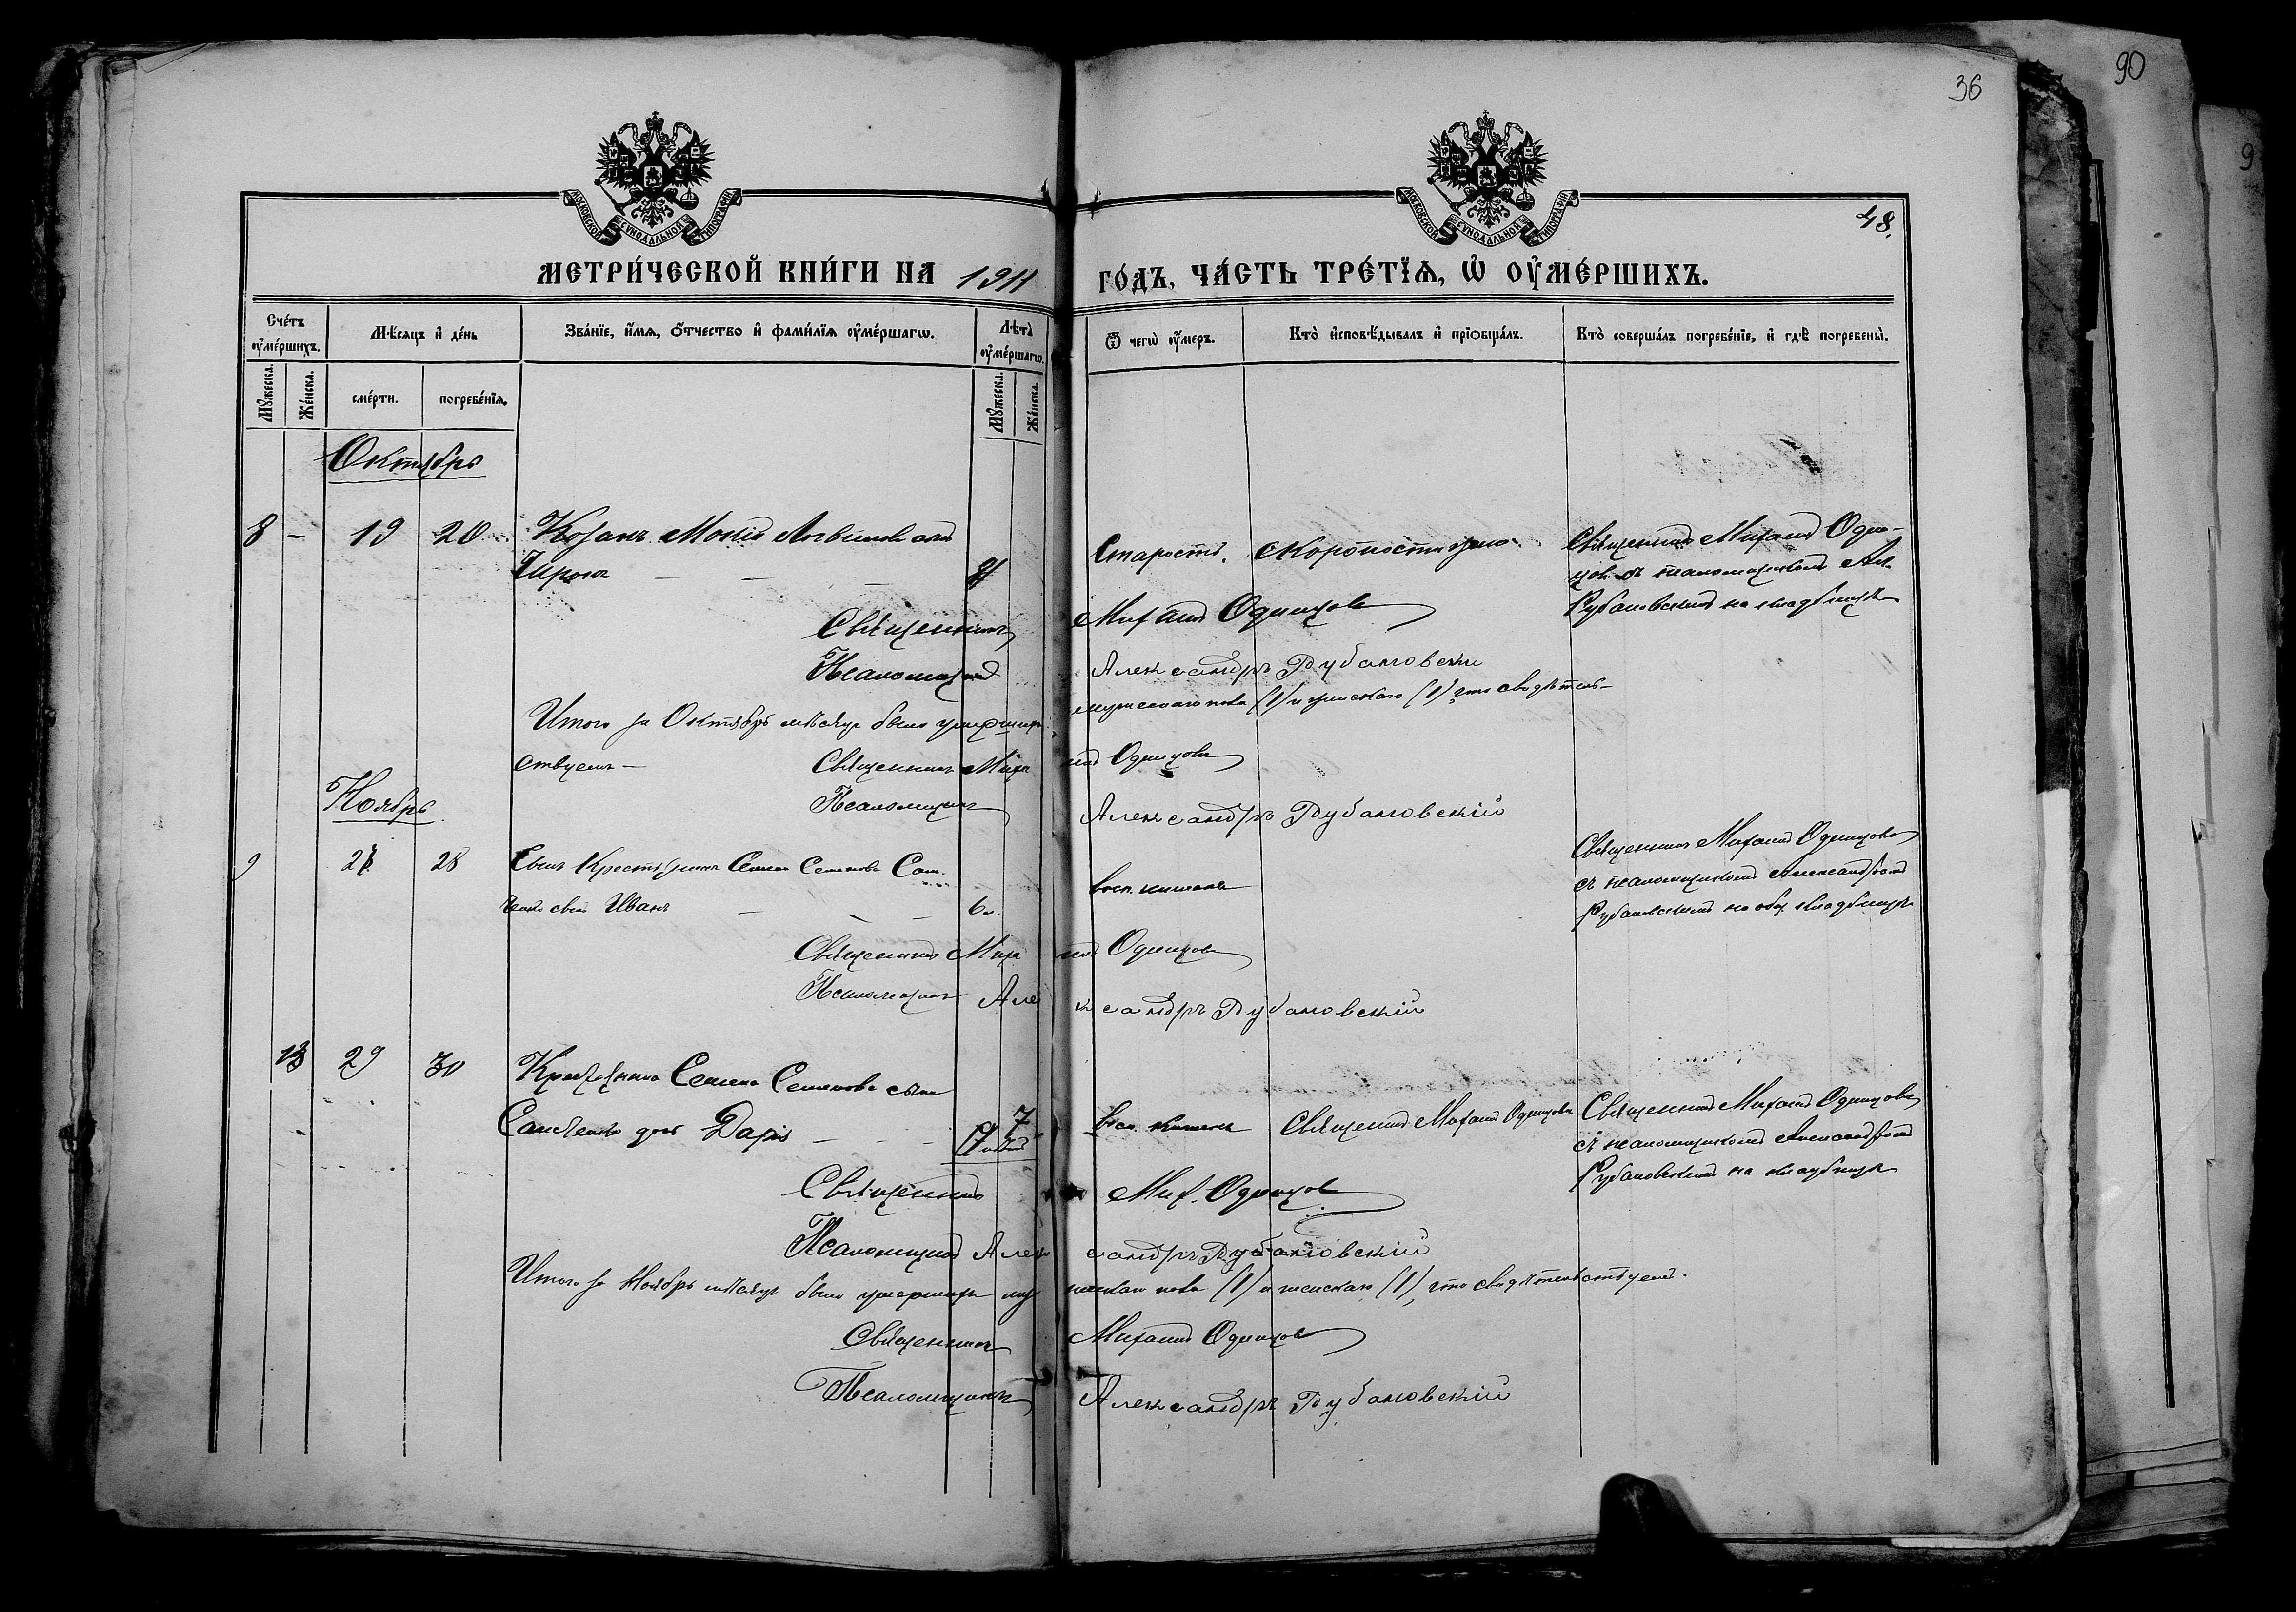 90
36
9
МОСКОВСКОЙ СѴНОДАЛЬНОЙ ТИПОГРАФІИ
МОСКОВСКОЙ СѴНОДАЛЬНОЙ ТИПОГРАФІИ
48.
МЕТРИ́ЧЕСКОЙ КНИ́ГИ НА 1911 ГО́ДЪ, ЧА́СТЬ ТРЕ́ТІѦ, Ѡ҆ ОУ҆МЕ́РШИХЪ.
Сче́тъ оу҆ме́ршихъ.
Мꙋ́жеска.
Же́нска.
Мѣ́сяцъ и҆ де́нь
сме́рти.
погребе́нїѧ.
Зва́нїе, и҆́мѧ, ѻ҆́тчество и҆ фами́лїѧ оу҆ме́ршагѡ.
Лѣ́та̀ оу҆ме́ршагѡ.
Мꙋ́жеска.
Же́нска.
Ѿ чегѡ̀ оу҆́меръ.
Кто̀ и҆сповѣ́дывалъ и҆ прїѻбща́лъ.
Кто̀ соверша́лъ погребе́нїе, и҆ гдѣ̀ погребены̀.
Октябрь
8 — 19 20 Козакъ Мокій Логвиновъ
Старость. Скоропостижно. Священникъ Михаилъ Один-
цовъ съ псаломщикомъ Ал.
Рубановскимъ на кладбищѣ
Священникъ Михаилъ Одинцовъ
Псаломщикъ Александръ Рубановскій
Итого за Октябрь мѣсяцъ было умершихъ мужескаго пола (1) и женскаго (1), что свидѣтель-
ствуемъ — Священникъ Михаилъ Одинцовъ
Ноябрь
Псаломщикъ Александръ Рубановскій
9 27 28 Сынъ Крестьянина Семена Семенова Сам-
ченко сынъ Иванъ — — — 6 м.
Восп. кишекъ
Священникъ Михаилъ Одинцовъ
съ псаломщикомъ Александромъ
Рубановскимъ на общ. кладбищѣ
Священникъ Михаилъ Одинцовъ
Псаломщикъ Александръ Рубановскій
13 29 30 Крестьянина Семена Семенова сына
Самченко дочь Дарія — — — 7
Восп. кишекъ Священникъ Михаилъ Одинцовъ Священникъ Михаилъ Одинцовъ
съ псаломщикомъ Александромъ
Рубановскимъ на кладбищѣ
Священникъ Мих. Одинцовъ
Псаломщикъ Александръ Рубановскій
Итого за Ноябрь мѣсяцъ было умершихъ мужескаго пола (1) и женскаго (1), что свидѣтельствуемъ.
Священникъ Михаилъ Одинцовъ
Псаломщикъ Александръ Рубановскій